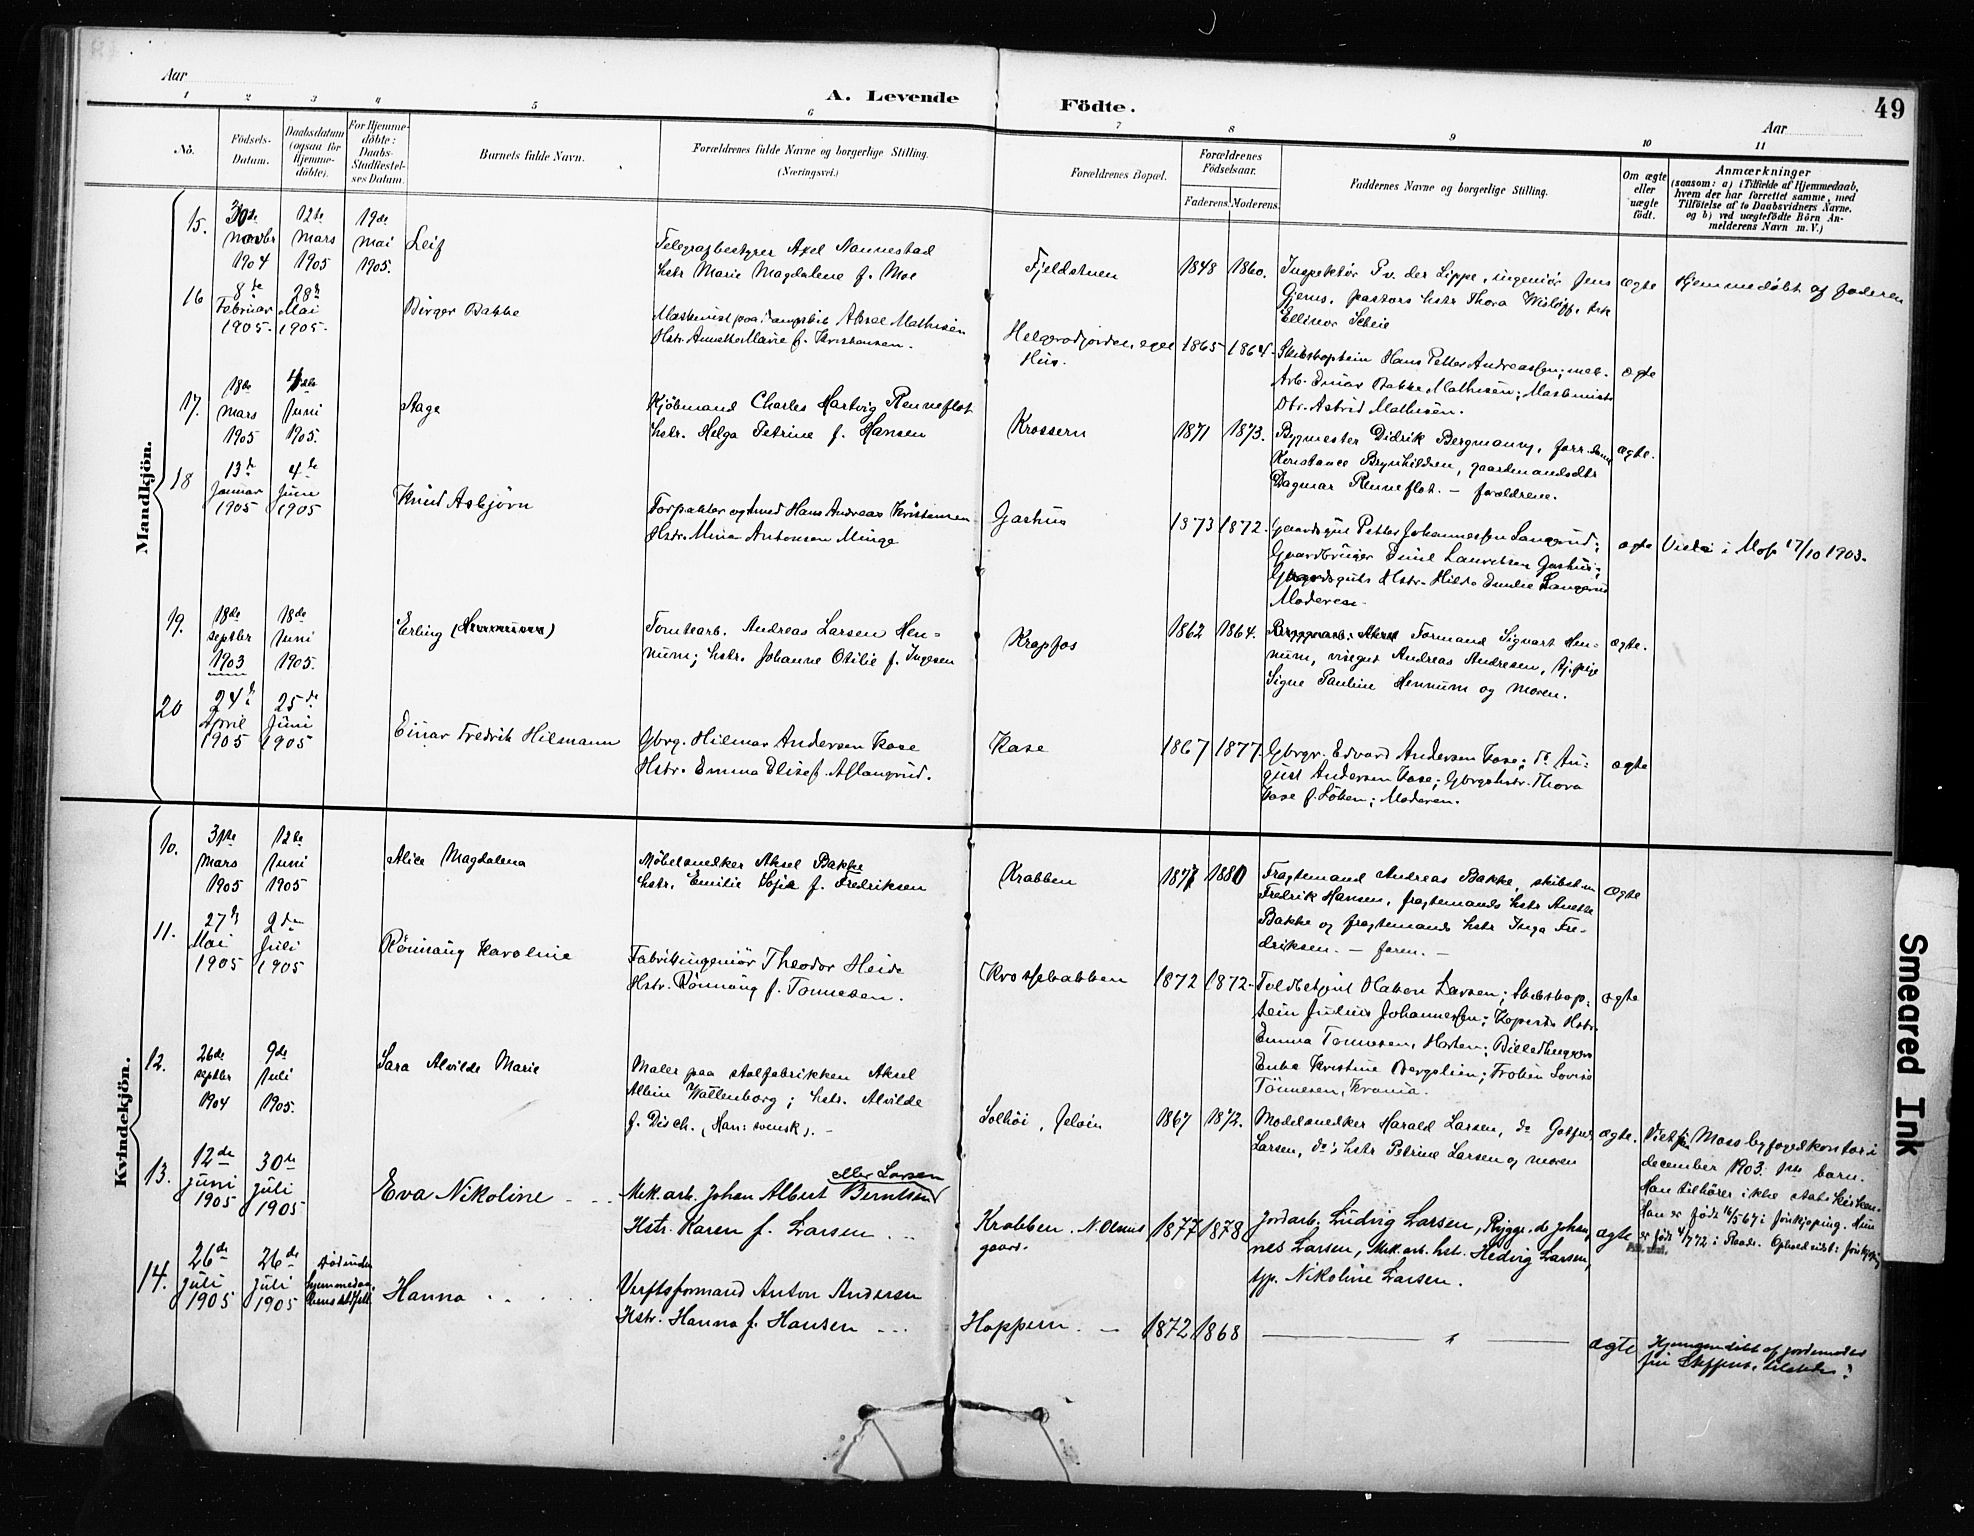 49
Aar
Aar
A. Levende Födte.
1 2 3 4 5 6 7 8 9 10 11
No.
Födsels-
Datum.
Daabsdatum
(ogsaa for
Hjemme-
döbte).
For Hjemme-
döbte:
Daabs-
Stadfæstel-
ses Datum.
Barnets fulde Navn.
Forældrenes fulde Navne og borgerlige Stilling.
(Næringsvei.)
Forældrenes Bopæl.
Forældrenes
Födselsaar.
Faderens. Moderens.
Faddernes Navne og borgerlige Stilling.
Om ægte
eller
uægte
födt.
Anmærkninger
(saasom: a) i Tilfælde af Hjemmedaab,
hvem der har forrettet samme, med
Tilföielse af to Daabsvidners Navne.
og b) ved uægtefödte Börn An-
melderens Navn m. V.)
Mandkjön.
15.
30te
novbr
1904
12te
Mars
1905
19de
Mai
1905.
Leif
Telegrafbestyrer Axel Nannestad
hstr Marie Magdalene f. Moe
Fjeldstuen
1848 1860.
Inspektør P v. der Lippe, ingeniør Jens
Gjerns, pastors hstr Thora Wisløff, frk
Ellinor Scheie
ægte
Hjemmedøbt af faderen
16
8de
Februar
1905.
28de
Mai
1905.
Birger Bakke
Maskinist paa Aksel Mathisen
Hstr. Annette Marie f. Kristiansen.
Helgerødjordet, eget
Hus.
1865 1864.
Skibskaptein Hans Petter Andreassen; mek.
Arb. Einar Bakke Mathisen; Maskinists
Dtr. Astrid Mathisen.
ægte
17.
18de
Mars
1905
4de
Juni
1905.
Aage
Kjöbmand Charles Hartvig Renneflot
hstr. Helga Petrine f. Hansen
Krossern
1871 1873.
Bygmester Didrik Bergmann,
Konstance Brynhildsen, gaardmandsdtr
Dagmar Renneflot. - forældrene.
ægte.
18
13de
Januar
1905
4de
Juni
1905
Knud Asbjørn
Forpakter og Smed Hans Andreas Kristiansen
Hstr. Mina Antonsen Minge
Gashus
1873 1872.
Gaardsgut Petter Johannessen Langerud;
Gaardbruger Emil Lauritsen Gashus;
Gaardsguts Hstr. Hilda Emilie Langerud
Moderen.
ægte
Viede i Moss 17/10 1903.
19.
18de
septbr
1903
18de
Juni
1905.
Erling
Tomtearb. Andreas Larsen Hen=
num; hstr. Johanne Otilie f. Ingesen
Krapfos
1862 1864.
Formand Sigvart Hen-
num, Andreas Andresen, tj.pige
Signe Pauline Hennum og moren.
ægte.
20
24de
April
1905
25de
Juni
1905
Einar Fredrik Hilmann
Gbrg. Hilmar Andersen Kase
Hstr. Emma Elise f. Aslangrud.
Kase
1867 1877.
Gbrgr. Edvard Andersen Kase; do Au=
gust Andersen Kase; Gbrgshstr. Thora
Kase f. Løken; Moderen.
ægte
Kvindekjön.
10.
31te
Mars
1905
12te
Juni
1905
Alice Magdalena
Møbelsnedker Aksel Bakke
hstr. Emilie Sofie f. Fredriksen
Krabben
1877 1880
Fragtemand Andreas Bakke, skibstm
Fredrik Hansen, fragtemands hstr Anette
Bakke og fragtemands hstr Inga Fre-
driksen. - faren. -
ægte
11.
27de
Mai
1905
2den
Juli
1905
Rönnaug Karoline
Fabrikingeniör Theodor Heide
Hstr. Rönnaug f. Tönnesen.
Krossebabben
1872 1872.
Toldbetjent Haken Larsen; Skibskap=
tein Julius Johannessen; Hstr.
Emma Tönnesen, Horten;
Enke Kristine Bergslien; Frøken Lovise
Tönnesen, Krania.
ægte
12.
26de
septbr
1904
9de
Juli
1905.
Sara Alvilde Marie
Maler paa stolfabrikken Aksel
Albin Wallenborg; hstr. Alvilde
f. Disch. (Han: svensk). -
Solhöi, Jeløen
1867 1872.
Modelsnedker Harald Larsen, do Gotfred
Larsen, do; hstr Petrine Larsen og moren
ægte.
Viet fra Moss byfogedkontor i
december 1903. 1ste barn.
Han tilhører ikke statskirken.
Han er født 16/5 67 i Jönkjöping. Hun
er født 4/7 72 i Raade. Ophold sidst: Jönkjöping
13.
12de
Juni
1905
30te
Juli
1905
Eva Nikoline
eller Larsen
Mek. arb. Johan Albert Berntsen
Hstr. Karen f. Larsen
Krabben. N. Olaus
gaard.
1877 1878
Jordarb. Ludvig Larsen, Rygge, do Johan=
nes Larsen, Mek. arb. hst. Hedvig Larsen,
tjp. Nikoline Larsen.
ægte
14.
26de
Juli
1905
26de
Juli
1905
Død inden
hjemmedaa=
bens stadfest.
Hanna
Verftsformand Anton Andersen
Hstr. Hanna f. Hansen
Hoppern.
1872 1868
ægte
Hjemmedøbt af jordemoder
fru Steffens, tilstede:
Smeared Ink